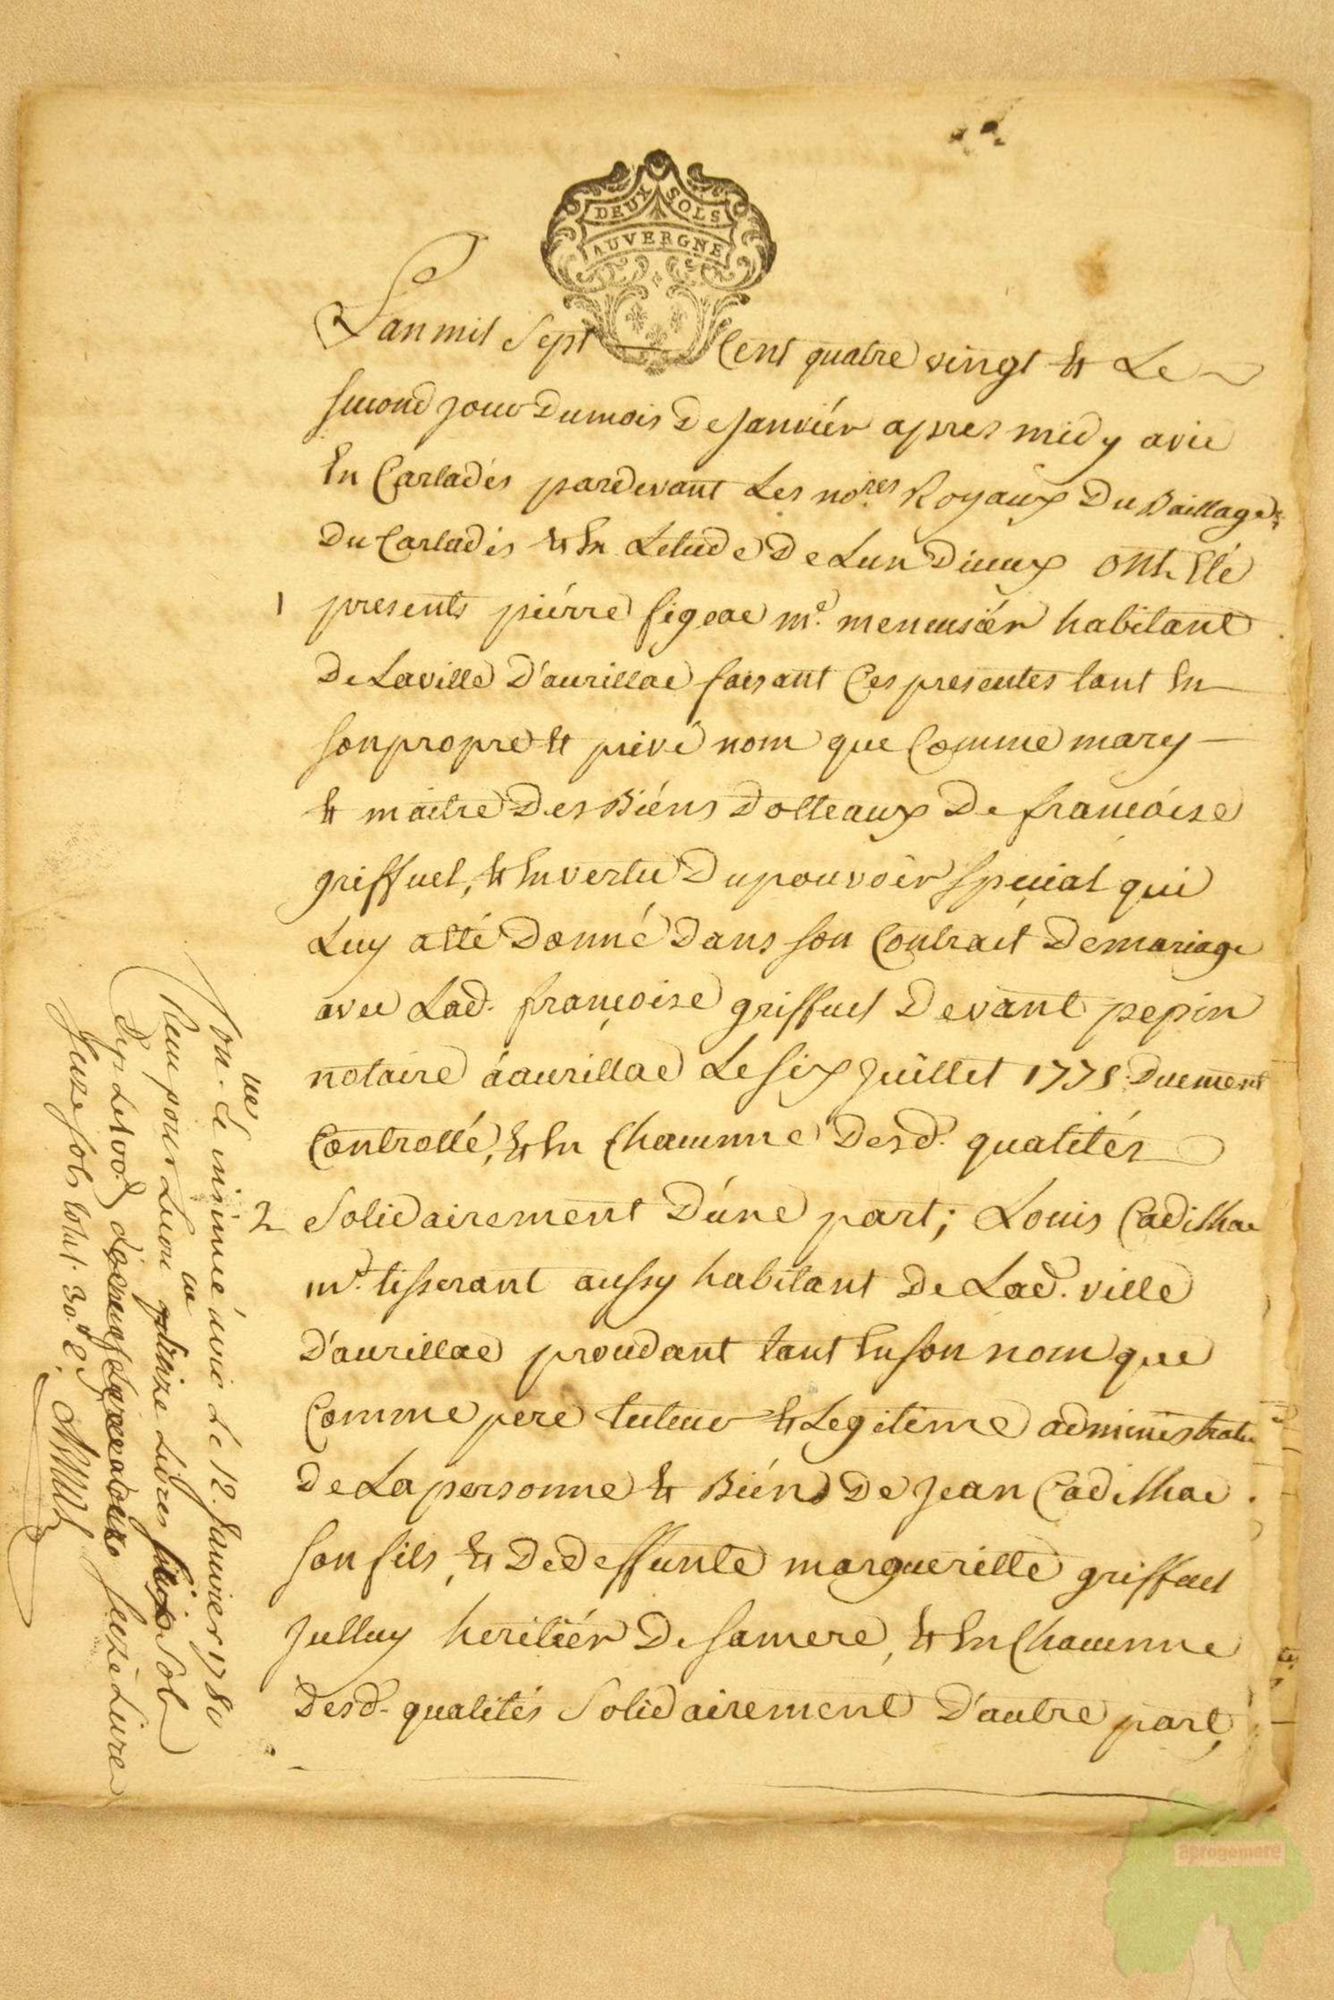 DEUX SOLS
AUVERGNE
L'an mil sept cent quatre vingt & Le
second jour du mois De janviér apres midy a vic
En Carladés pardevant Les no.res Royaux Du Baillage
Du Carladés & En Letude De Lun Diceux ont Eté
1 presents piérre figeac m.e menuisiér habitant
De Laville D'aurillac faisant Ces presentes tant En
son propre & privé nom que Comme mary
& maitre Des Biéns Dotteaux De francóise
griffuel, & En vertu Du pouvoir special qui
Luy a été Donné Dans son Contrait De mariage
avec Lad. françoise griffuel Devant pepin
notaire á aurillac Le six juillet 1775 Duement
Controllé, & En Chacunne Desd. qualités
2 Solidairement D'úne part; Louis Cadilhac
m.d tisserant aussy habitant De Lad. ville
D'aurillac procédant tant En son nom que
Comme pere tuteur & Legitime administrateur
De La personne & Biéns De jean Cadilhac
son fils, & De deffunte margueritte griffuel
Jelluy heritiér De sa mere, & En Chacunne
Desd. qualités Solidairement D'autre part,
Con. & insinué á vic Le 12. Janvier 1780
Recu pour Lun Livres Sols
seize Livres
seize sols total: 30.
aprogemere